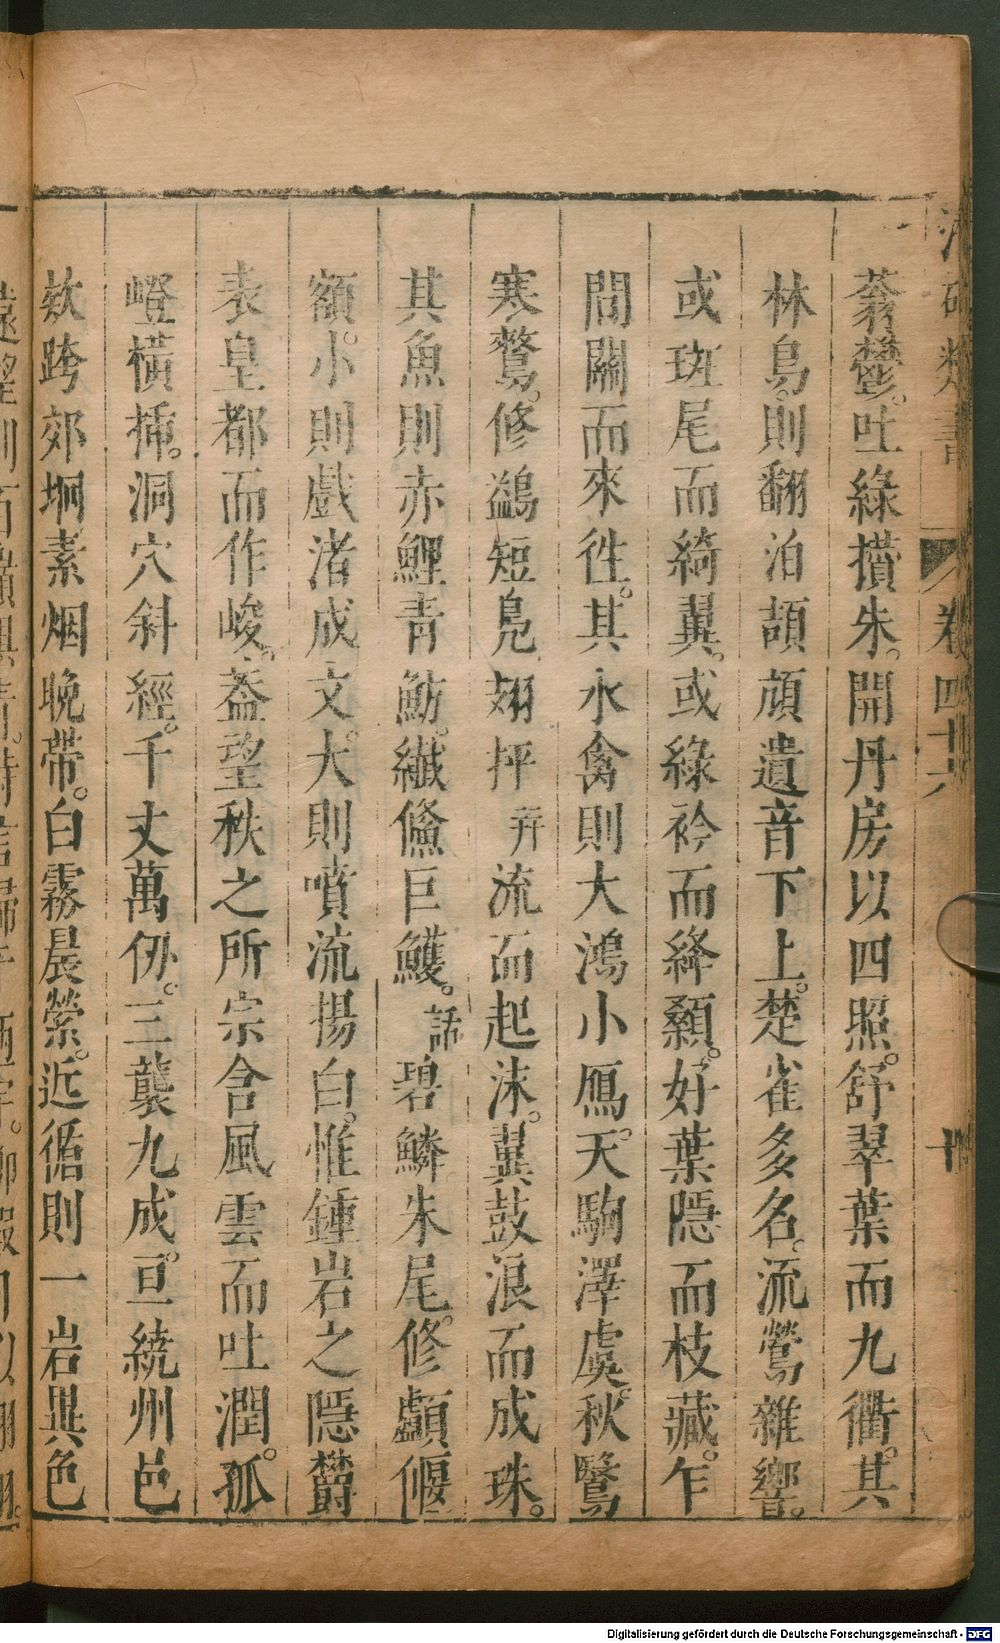 蓊鬱。吐綠攢朱。開丹房以四照。舒翠葉而九衢。其
林鳥。則翻泊頡頏遺音下上。楚雀多名。流鶯雜響。
或斑尾而綺翼。或綠衿而絳顙。好葉隱而枝藏。乍
間關而來徃。其水禽則大鴻小鴈。天駒澤虞。秋鷖
寒鶩。修鷁短鳧翅抨弄流而起沫。翼鼓浪而成珠。
其魚則赤鯉青魴。纖儵巨鱯。話碧鱗朱尾。修顱偃
額。小則戲渚成文。大則噴流揚白。惟鍾岩之隱欝
表皇都而作峻。葢望秩之所宗含風雲。而吐潤。孤
嶝橫揷。洞穴斜經。千丈萬仞。三襲九成。亘繞州邑
欵跨郊坰素烟晚帶。白霧晨縈。近循則一岩異色
卷四十六
十
Digitalisierung gefördert durch die Deutsche Forschungsgemeinschaft - DFG